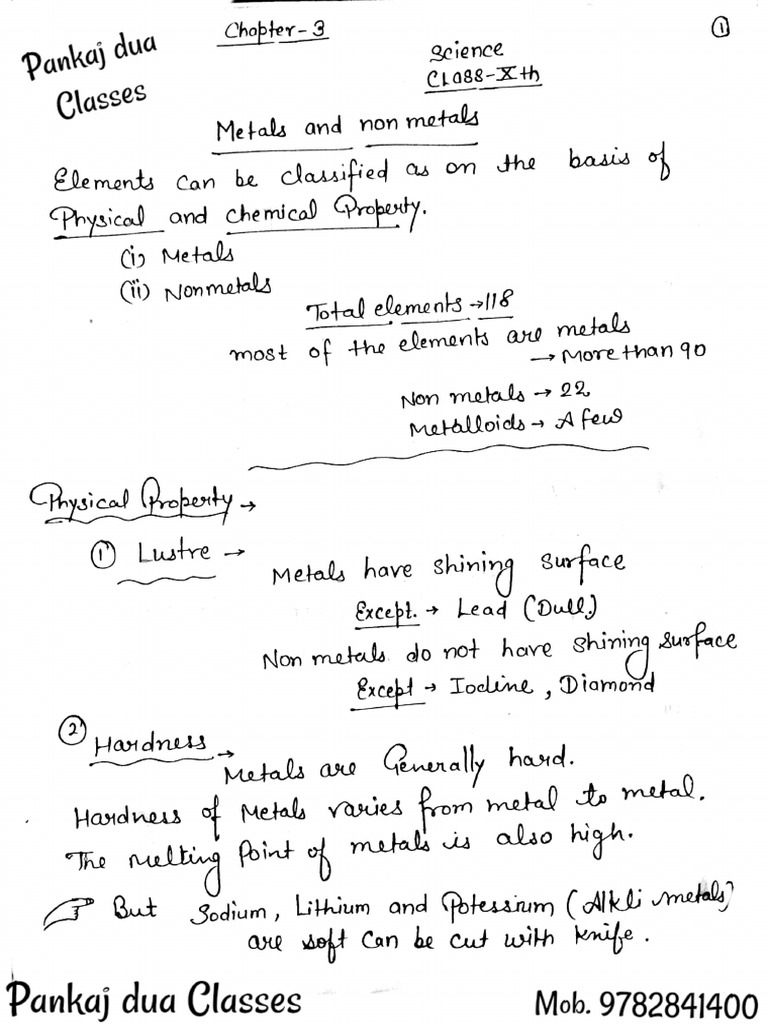 Pankaj dua
Classes
Chapter-3
1
Science
Class-Xth
Metals and non metals
Elements can be classified as on the basis of
Physical and chemical Property.
(i) Metals
(ii) Nonmetals
Total elements → 118
most of the elements are metals
→ More than 90
Non metals → 22
Metalloids → A few
Physical Property →
1 Lustre →
Metals have shining surface
Except. → Lead (Dull)
Non metals do not have shining surface
Except → Iodine, Diamond
2 Hardness →
Metals are Generally hard.
Hardness of Metals varies from metal to metal.
The melting Point of metals is also high.
But Sodium, Lithium and Potessium (Alkli metals)
are soft can be cut with knife.
Pankaj dua Classes
Mob. 9782841400